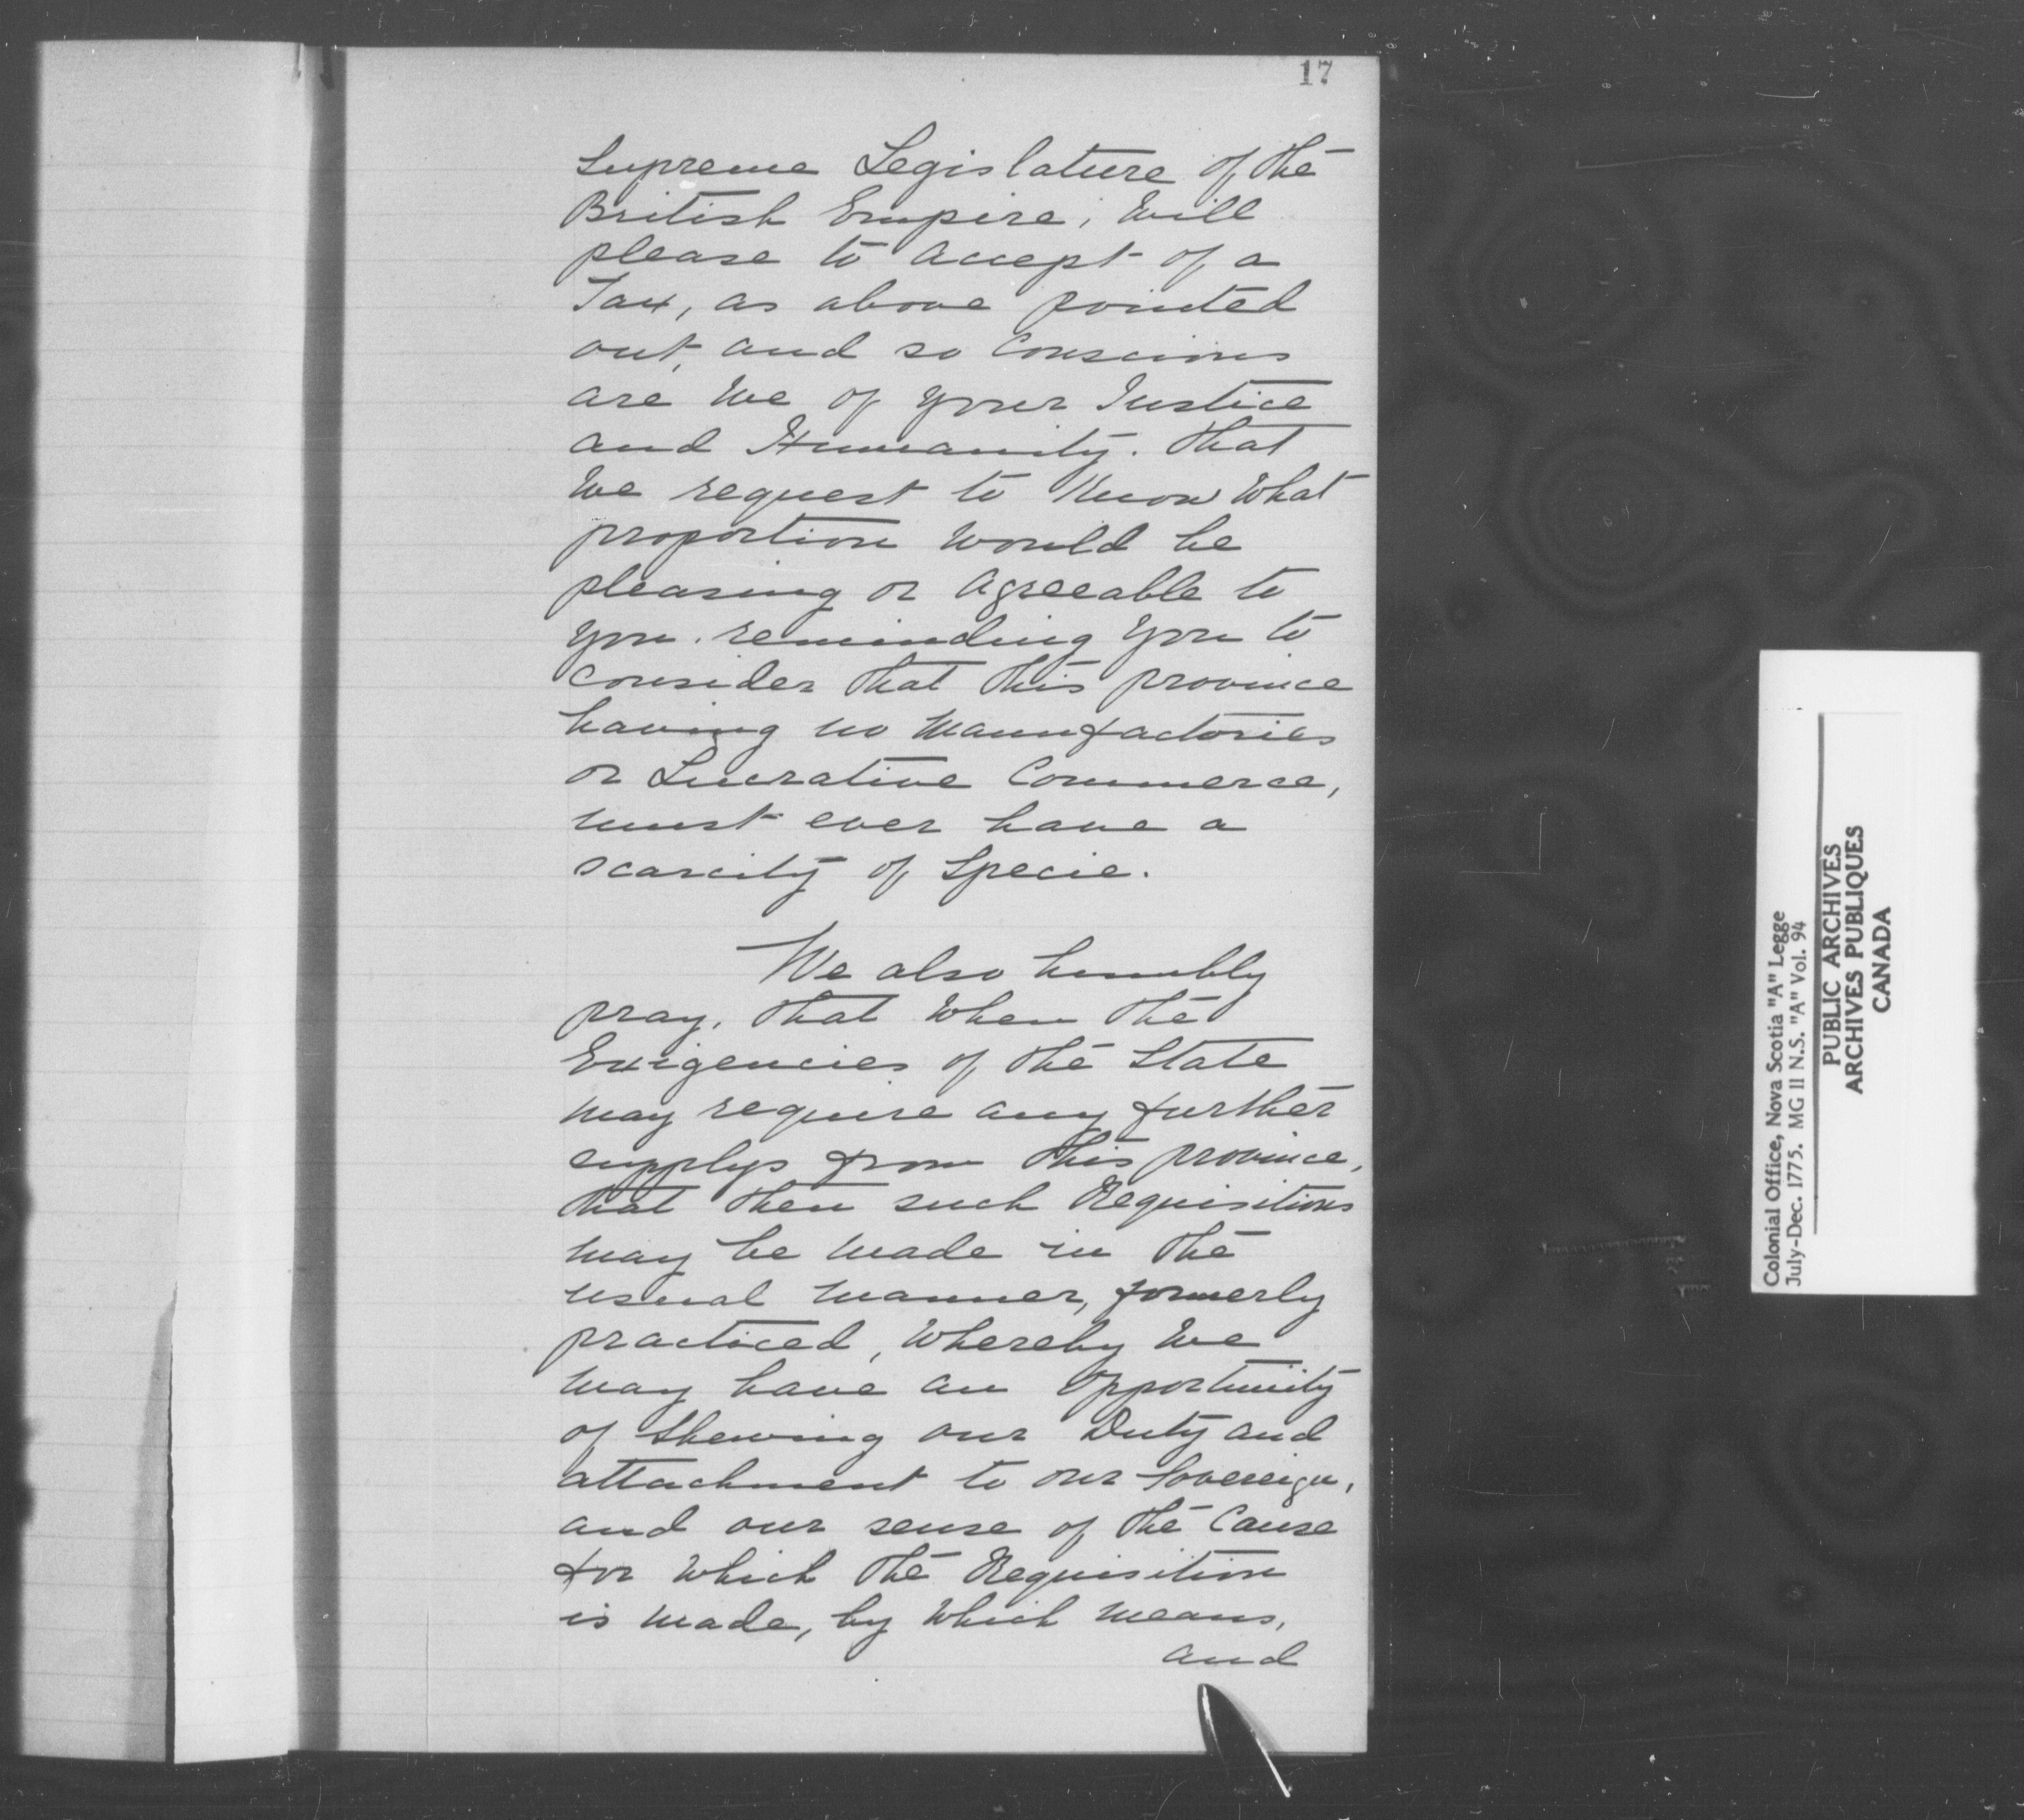 17
Supreme Legislature of the
British Empire, Will
please to accept of a
Tax, as above pointed
out, and so Conscious
are We of your Justice
and Humanity. that
We request to Know What
proportion Would be
pleasing or agreeable to
you. reminding you to
Consider that this province
having no Manufactories
or Lucrative Commerce,
must ever have a
scarcity of Specie.
We also humbly
pray, that When the
Exigencies of the State
may require any further
supplys from this province,
that then such Requisitions
may be made in the
usual manner, formerly
practiced, Whereby We
may have an Opportunity
of Shewing our Duty and
attachment to our Sovereign,
and our sense of the Cause
for Which the Requisition
is made, by Which means,
and
Colonial Office, Nova Scotia "A" Legge
July-Dec. 1775. MG 11 N.S. "A" Vol. 94
PUBLIC ARCHIVES
ARCHIVES PUBLIQUES
CANADA